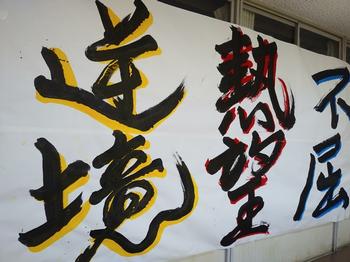 不屈
熱望
逆境